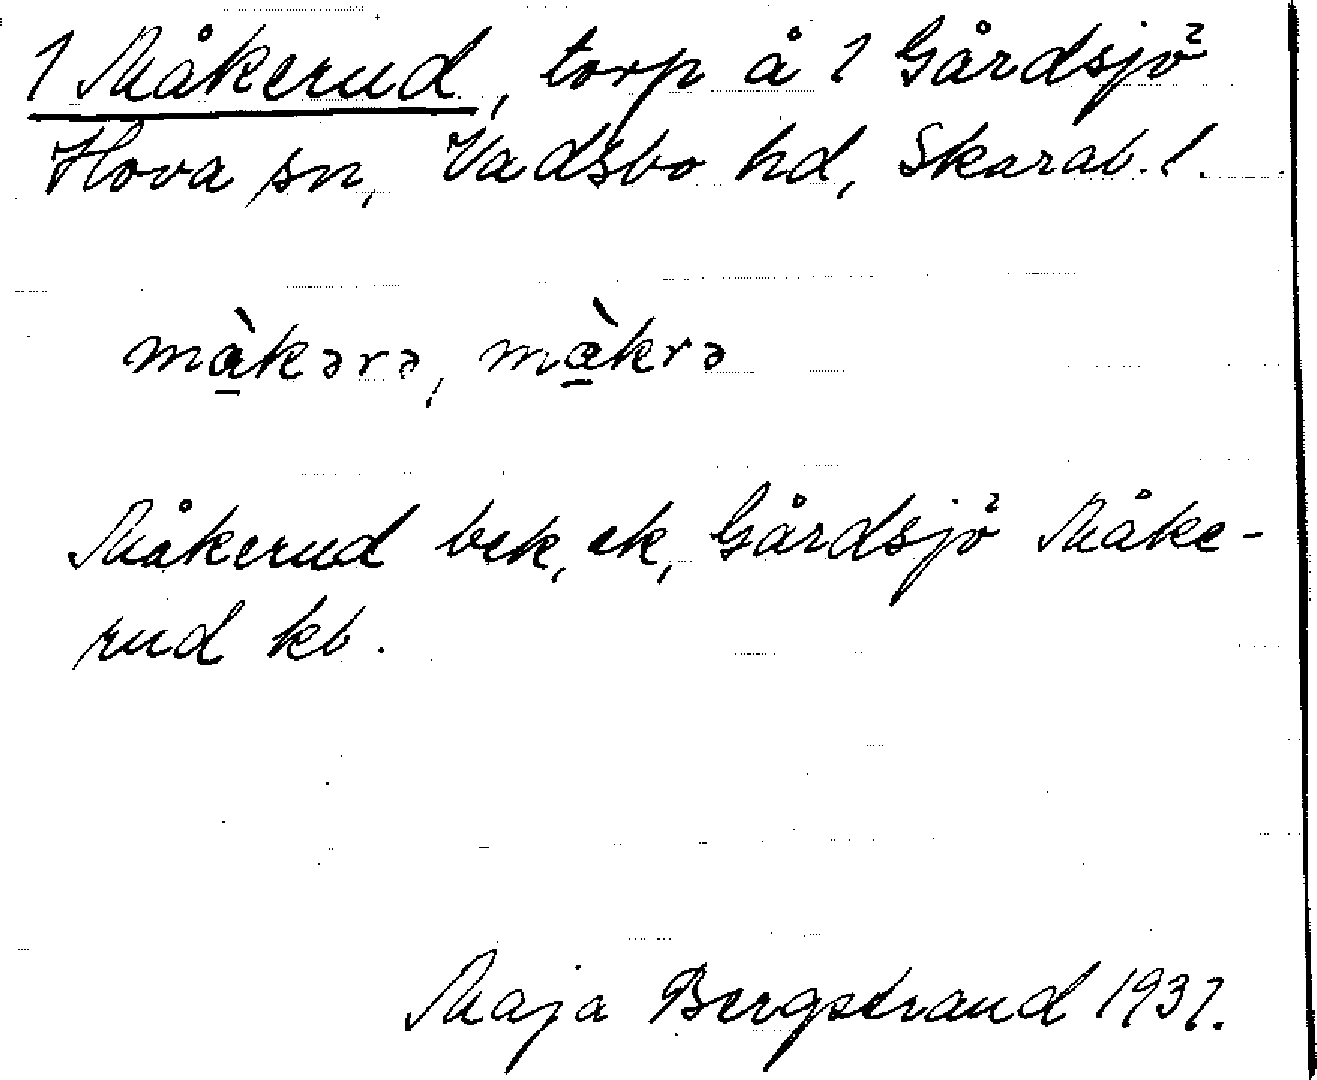 1 Måkerud, torp å 1 Gårdsjö
Hova sn, Vadsbo hd, Skarab. l.
màkərə, màkrə
Måkerud bek, ek, Gårdsjö Måke-
rud kb.
Maja Bergstrand 1937.